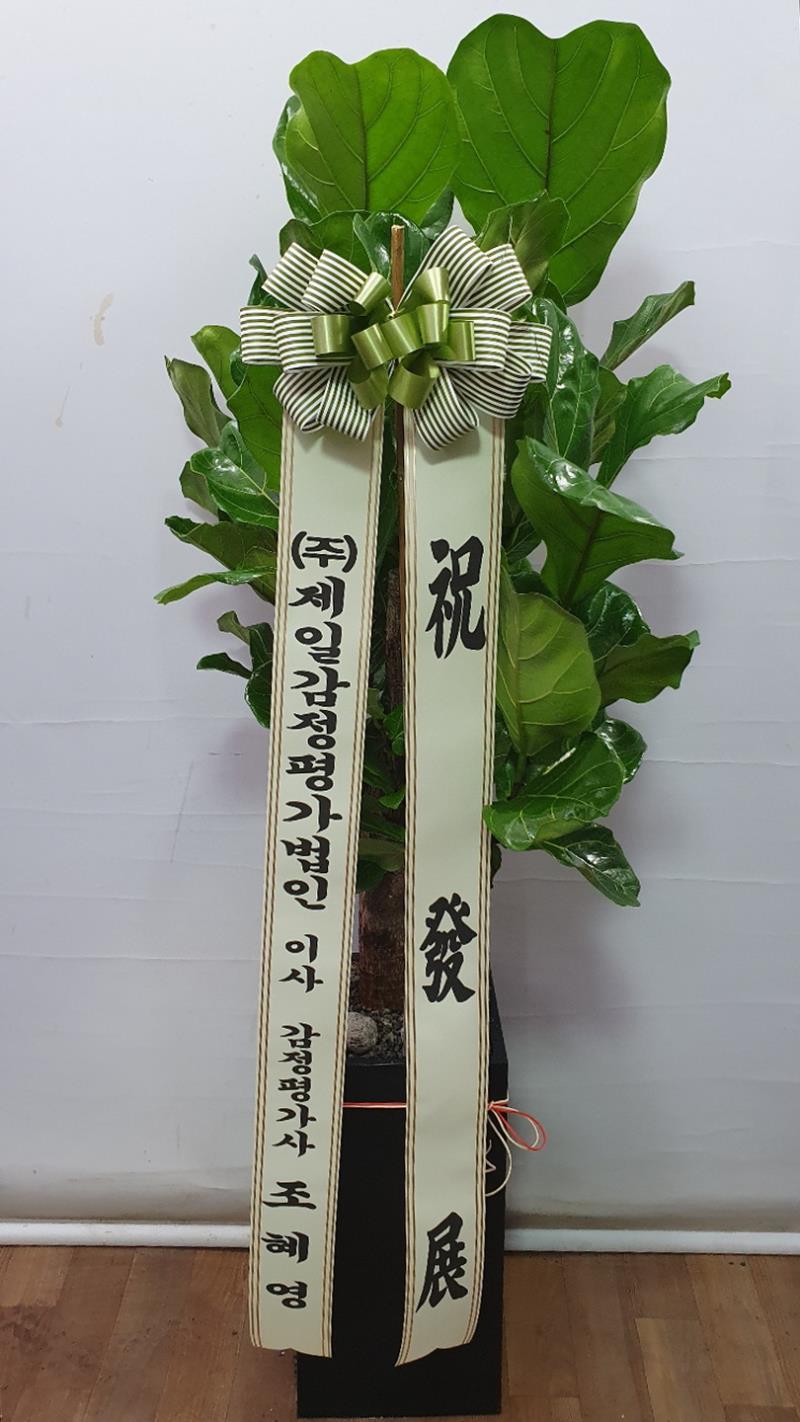 (주)제일감정평가법인 이사 감정평가사 조혜영
祝發展